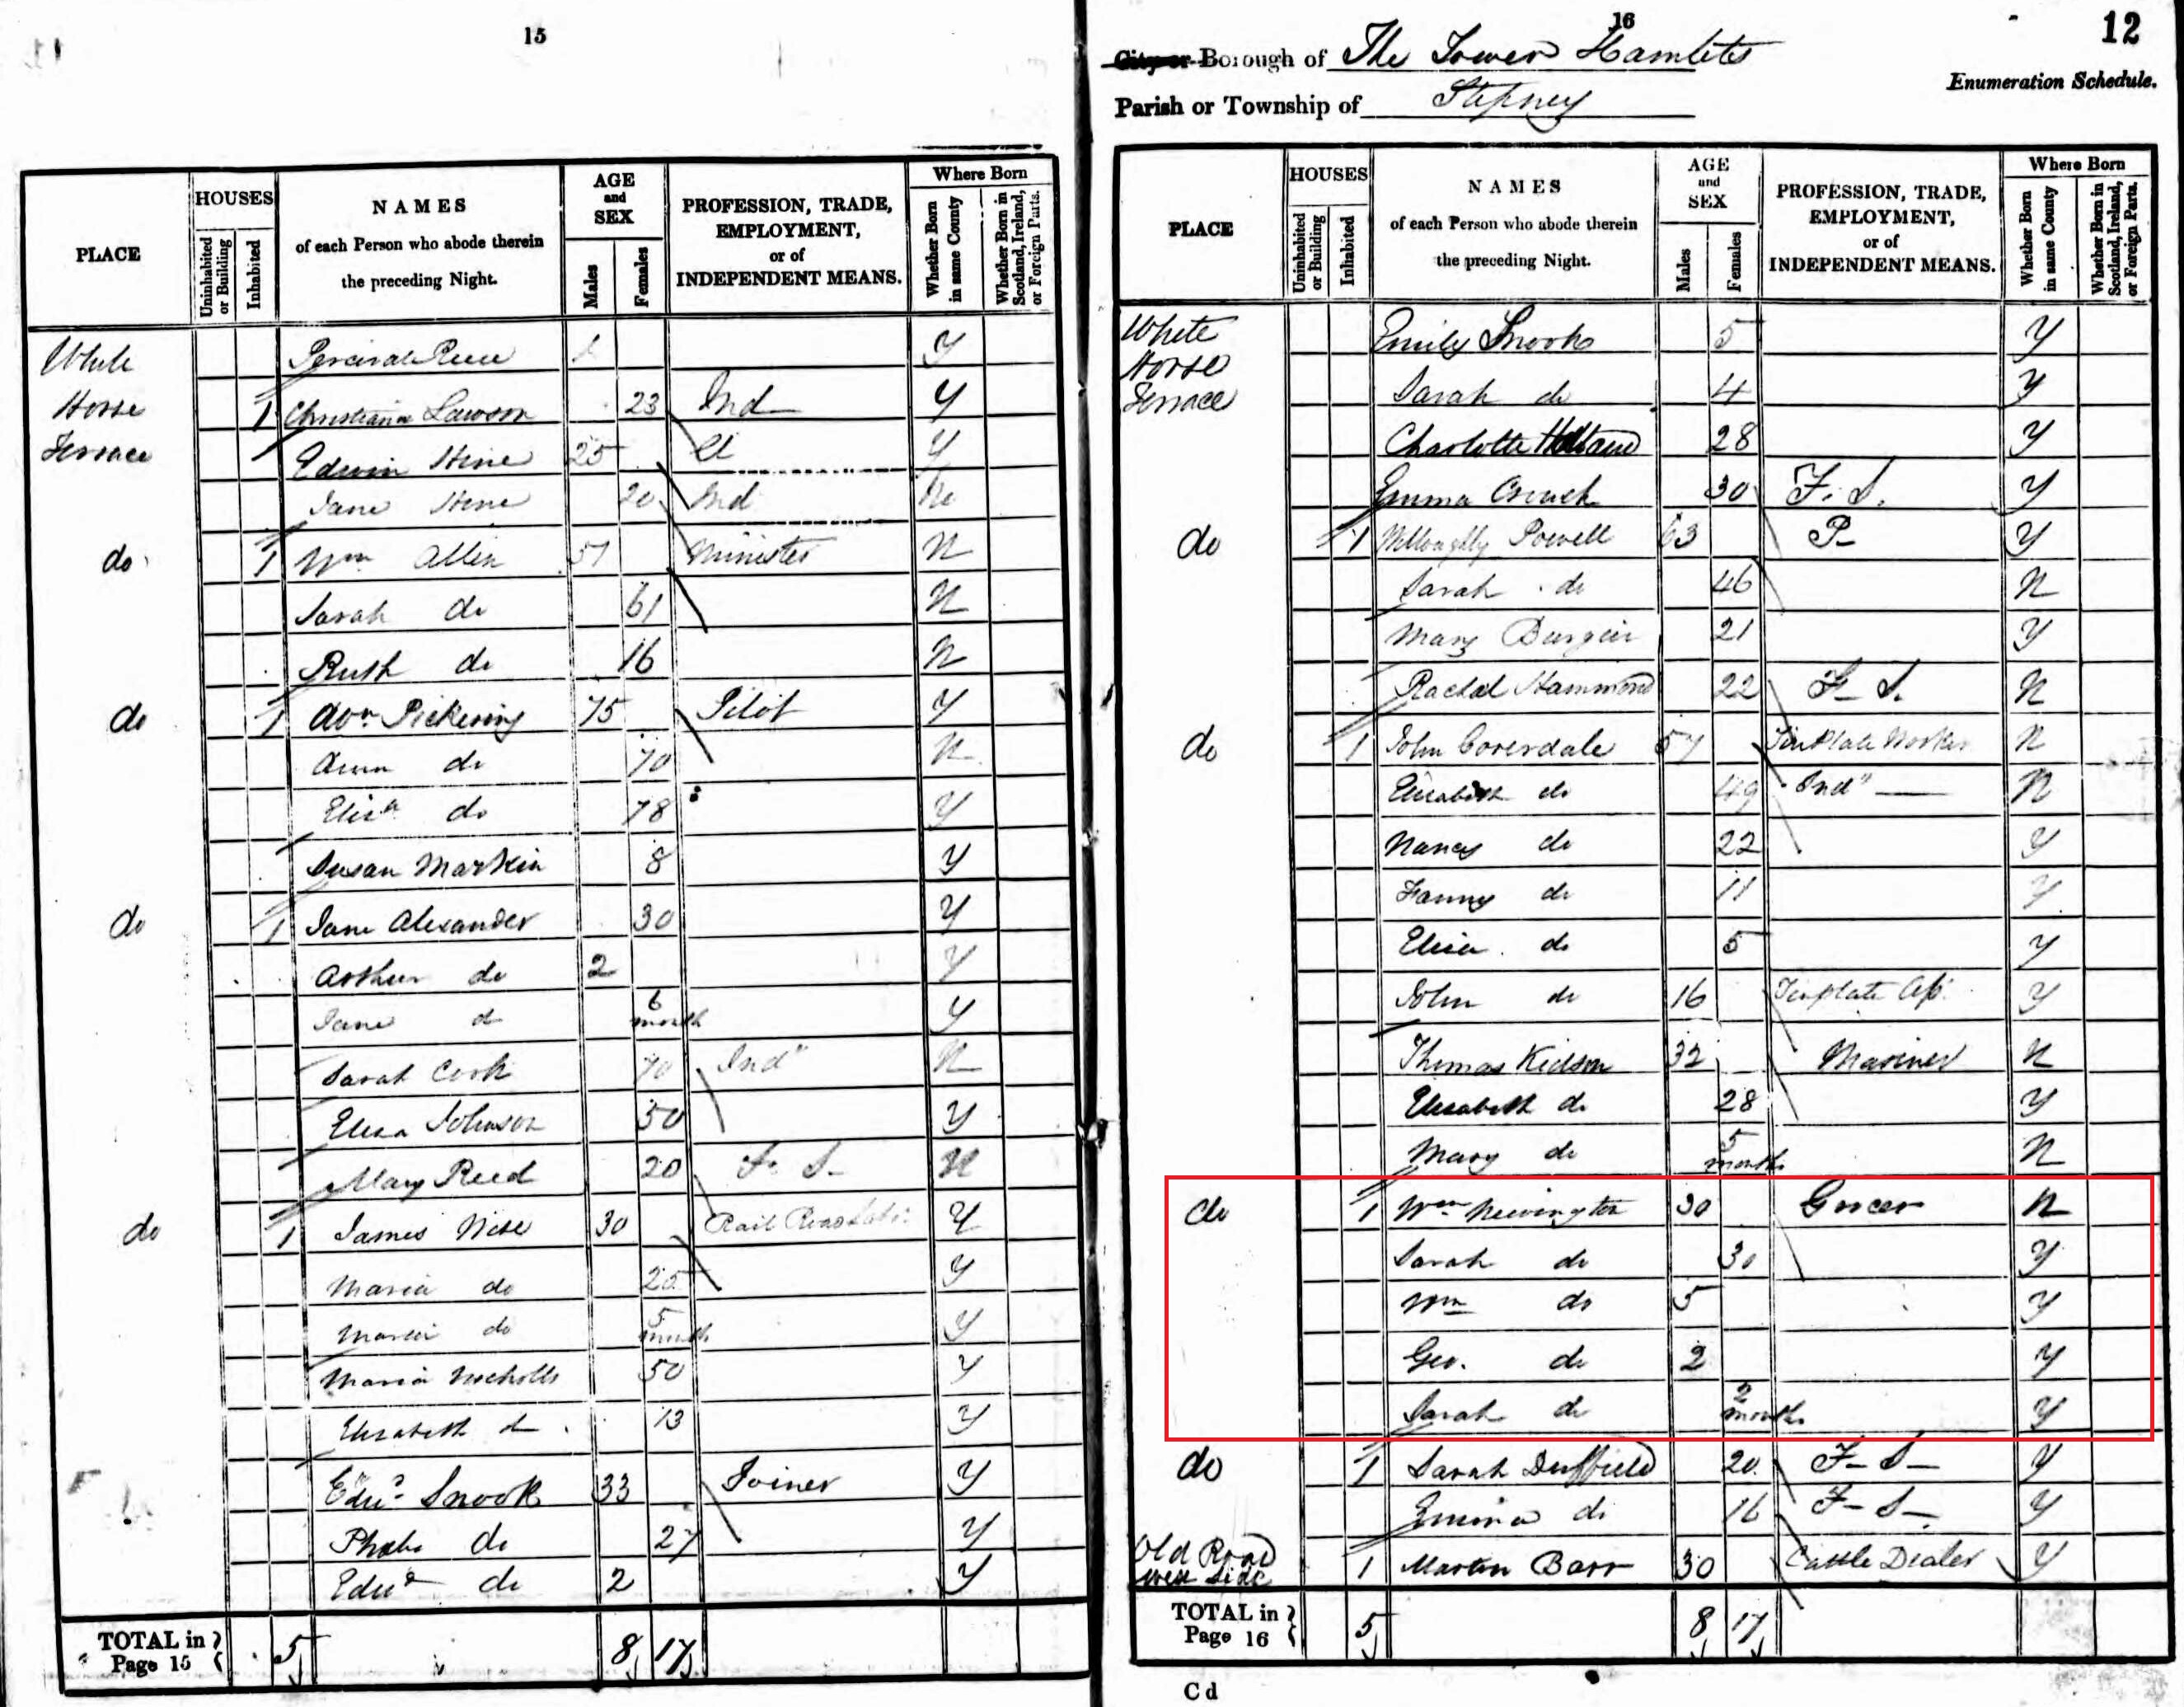 15
PLACE
HOUSES
Uninhabited or Building
Inhabited
NAMES
of each Person who abode therein
the preceding Night.
AGE
and
SEX
Males
Females
PROFESSION, TRADE,
EMPLOYMENT,
or of
INDEPENDENT MEANS.
Where Born
Whether Born in same County
Whether Born in Scotland, Ireland, or Foreign Parts.
White Y
Horse 1 Christiana Lawson 23 Ind Y
Terrace Edwin Hine 25 Y
Jane Hine 20 Ind No
do 1 Wm Allen 57 Minister N
Sarah do 61 N
Ruth do 16 N
do 1 Pickering 75 Pilot Y
Ann do 70 N
Eliza do 78 Y
Susan Markin 8 Y
do 1 Jane Alexander 30 Y
Arthur do 2 Y
Jane do 6 month Y
Sarah Cook 70 Ind Y
Eliza Johnson 50 Y
Mary Reed 20 F. S. N
do 1 James Wise 30 Rail Road Y
Maria do 25 Y
Maria do 5 month Y
Maria Nicholls 50 Y
Elizabeth do 13 Y
Edwd Snook 33 Joiner Y
Phobe do 27 Y
Edwd do 2 Y
TOTAL in Page 15 5 8 17
16
12
City or Borough of The Tower Hamlets
Enumeration Schedule.
Parish or Township of Stepney
PLACE
HOUSES
Uninhabited or Building
Inhabited
NAMES
of each Person who abode therein
the preceding Night.
AGE
and
SEX
Males
Females
PROFESSION, TRADE,
EMPLOYMENT,
or of
INDEPENDENT MEANS.
Where Born
Whether Born in same County
Whether Born in Scotland, Ireland, or Foreign Parts.
White Emily Snook 5 Y
Horse
Terrace Sarah do 4 Y
Charlotte 28 Y
Emma Crouch 30 F. S. Y
do 1 Willoughby Powell 63 P Y
Sarah do 46 N
Mary 21 Y
Rachel Hammond 22 F. S. N
do 1 John Coverdale 57 Tin Plate Worker N
Elizabeth do 49 Ind N
Nancy do 22 Y
Fanny do 11 Y
Eliza do 5 Y
John do 16 Tinplate Ap. Y
Thomas Kidson 32 Mariner N
Elizabeth do 28 Y
Mary do 5 months N
do 1 Wm Newington 30 Grocer N
Sarah do 30 Y
Wm do 5 Y
Geo. do 2 Y
Sarah do 2 months Y
do 1 Sarah Duffield 20 F. S. Y
Emma do 16 F. S. Y
Old Road
West Side 1 Martin Barr 30 Cattle Dealer Y
TOTAL in Page 16 5 8 17
C d